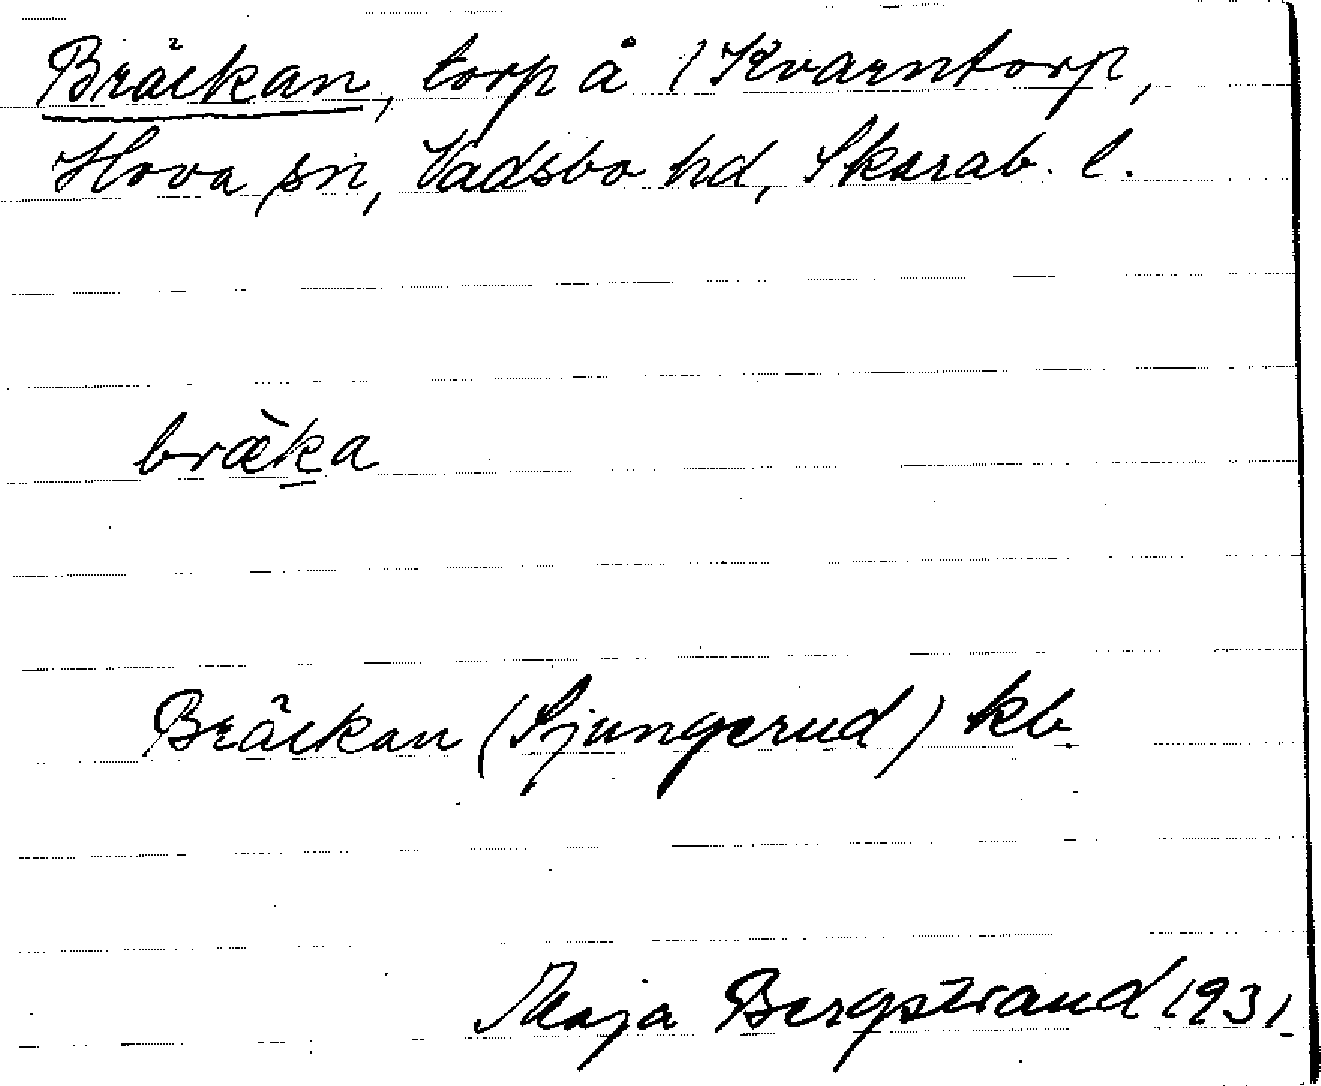 Bräckan, torp å 1 Kvarntorp,
Hova sn, Vadsbo hd, Skarab. l.
bræ̀ka
Bräckan (Ljungerud) kb.
Maja Bergstrand 1931.